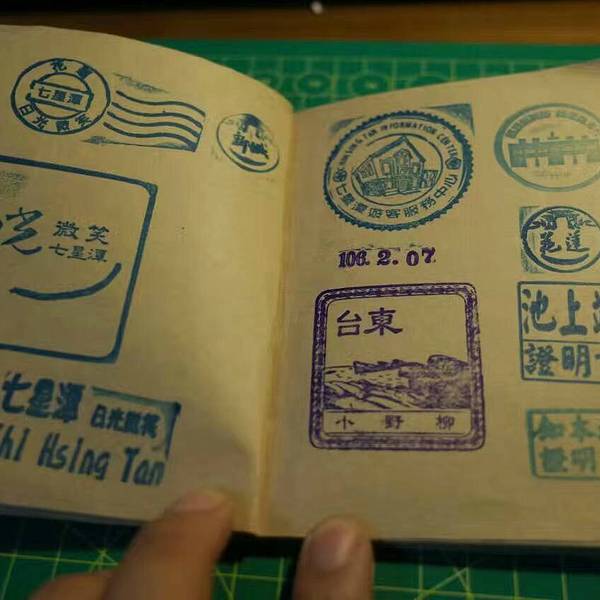 花蓮
七星潭
日光微笑
新城
光
微笑
七星潭
七星潭 日光微笑
Chi Hsing Tan
CHI HSING TAN INFORMATION CENTER
七星潭遊客服務中心
106. 2. 07
台東
小野柳
花蓮
池上站
證明
知本
證明